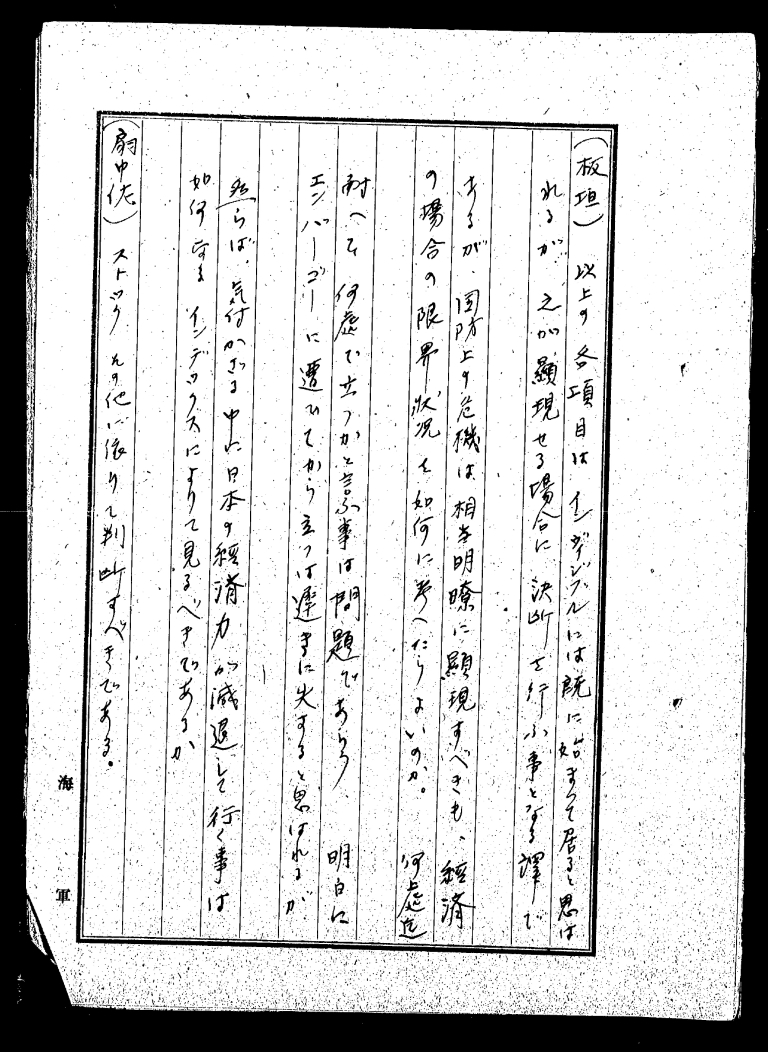 (板垣) 以上の各項目はインヴィジブルには既に始まって居ると思は
れるが、之が顕現せる場合に決断を行ふ事となる譯で
あるが、国防上の危機は、相当明瞭に顕現すべきも、經済
の場合の限界状況を如何に考へたらよいのか。 何處迄
耐へて何處で立つかと言ふ事は問題であらう、 明白に
エンバーゴーに遭ひてから立つは遅きに失すると思はれるが
然らば、気付かざる中に日本の經済力が減退して行く事は
如何なるインデックスによりて見るべきであるか
(扇中佐) ストックその他に依りて判断すべきである。
海軍